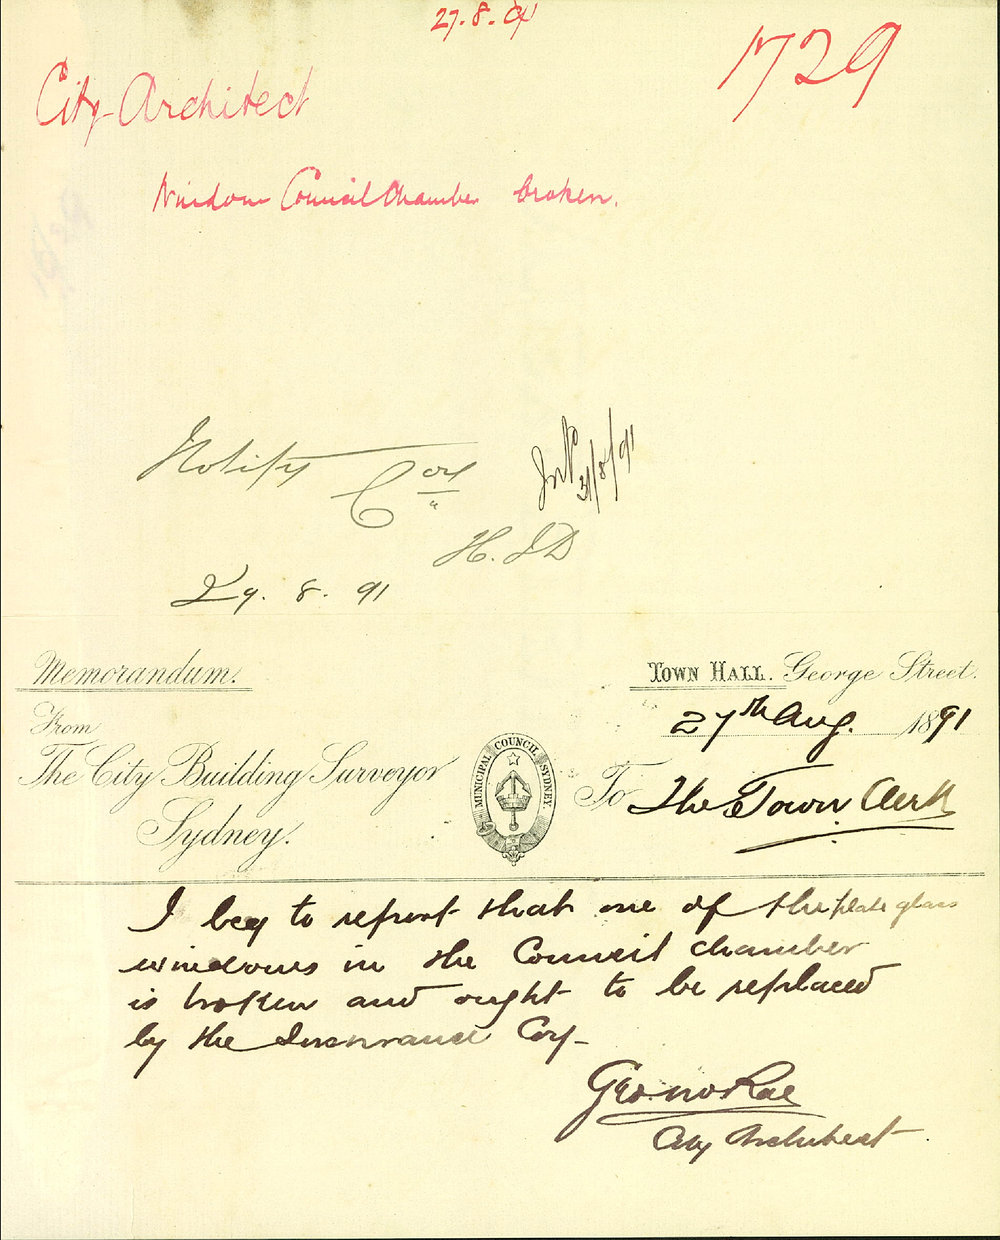 27.8.91
1729
City Architect
Window Council Chamber broken.
Notify Coy
31/8/91
H. J D
29. 8. 91
Memorandum.
TOWN HALL. George Street.
27th Aug. 1891
From
The City Building Surveyor
Sydney.
MUNICIPAL COUNCIL SYDNEY.
To The Town Clerk
I beg to report that one of the plate glass
windows in the Council chamber
is broken and ought to be replaced
by the Insurance Coy-
Geo. McRae
City Architect